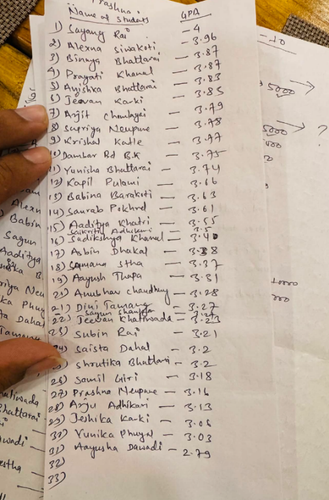 Prashna.
Name of students GPA
1) Sayang Rai — 4
2) Alexna Siwakoti — 3.96
3) Binaya Bhattarai — 3.87
4) Pragati Khanal — 3.87
5) Anjishka Bhattarai — 3.83
6) Jeevan Karki — 3.85
7) Anjit Chaulagai — 3.79
8) Supriya Neupane — 3.78
9) Krishal Katle — 3.77
10) Dambar Bd B.K — 3.75
11) Yunisha Bhattarai — 3.74
12) Kapil Pulami — 3.66
13) Babina Barakoti — 3.63
14) Saurab Pokhrel — 3.61
15) Aaditya Khatri — 3.55
Adhikari 3.5
16) Sadikshya Khanal — 3.40
17) Asbin Dhakal — 3.38
18) Samana Stha — 3.37
19) Aayush Thapa — 3.31
20) Anubhav chaudhary — 3.28
21) Dini Tamang — 3.27
22) Jeevan Khatiwada — 3.23
23) Subin Rai — 3.21
24) Saista Dahal — 3.2
25) Shrutika Bhattarai — 3.2
26) Samil Giri — 3.18
27) Prashna Neupane — 3.16
28) Anju Adhikari — 3.13
29) Jeshika Karki — 3.06
30) Yunika Phuyal — 3.03
31) Aayusha Dawadi — 2.79
32)
33)
5000
5000
?